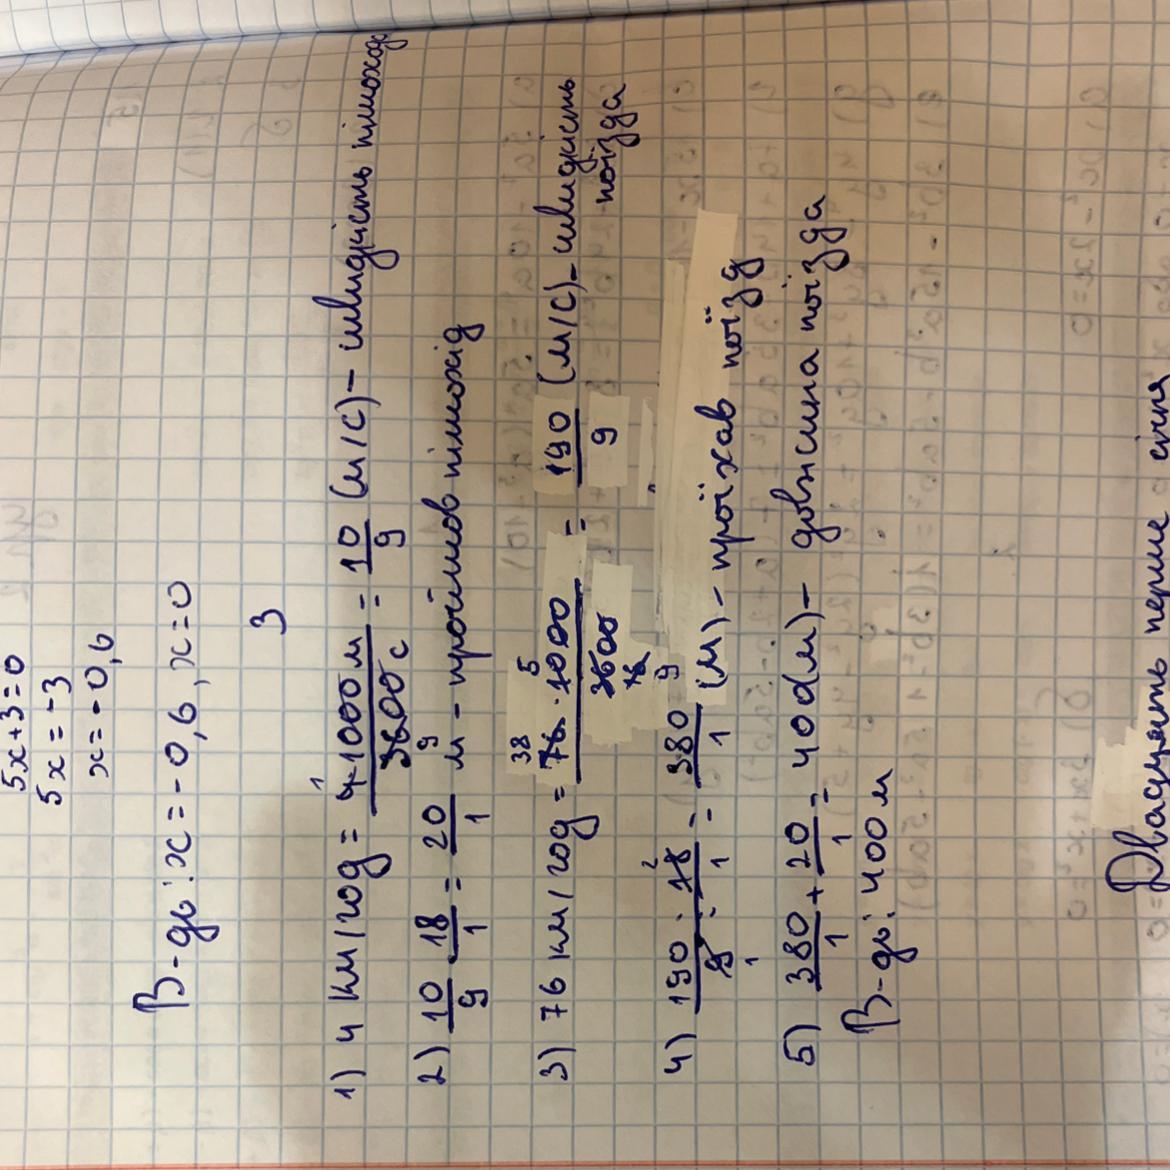 5x+3=0
5x=-3
x=-0,6
В-дь: x=-0,6, x=0
3
1) 4 км/год = 4·1000м/3600с = 10/9 (м/с) - швидкість пішоход
2) 10/9 · 18/1 = 20/1 м - пройшов пішохід
3) 76 км/год = 76·1000/3600 = 190/9 (м/с) - швидкість
поїзда
4) 190/9 · 18/1 = 380/1 (м) - проїхав поїзд
5) 380/1 + 20/1 = 400(м) - довжина поїзда
В-дь: 400 м
Двадцять перше січня